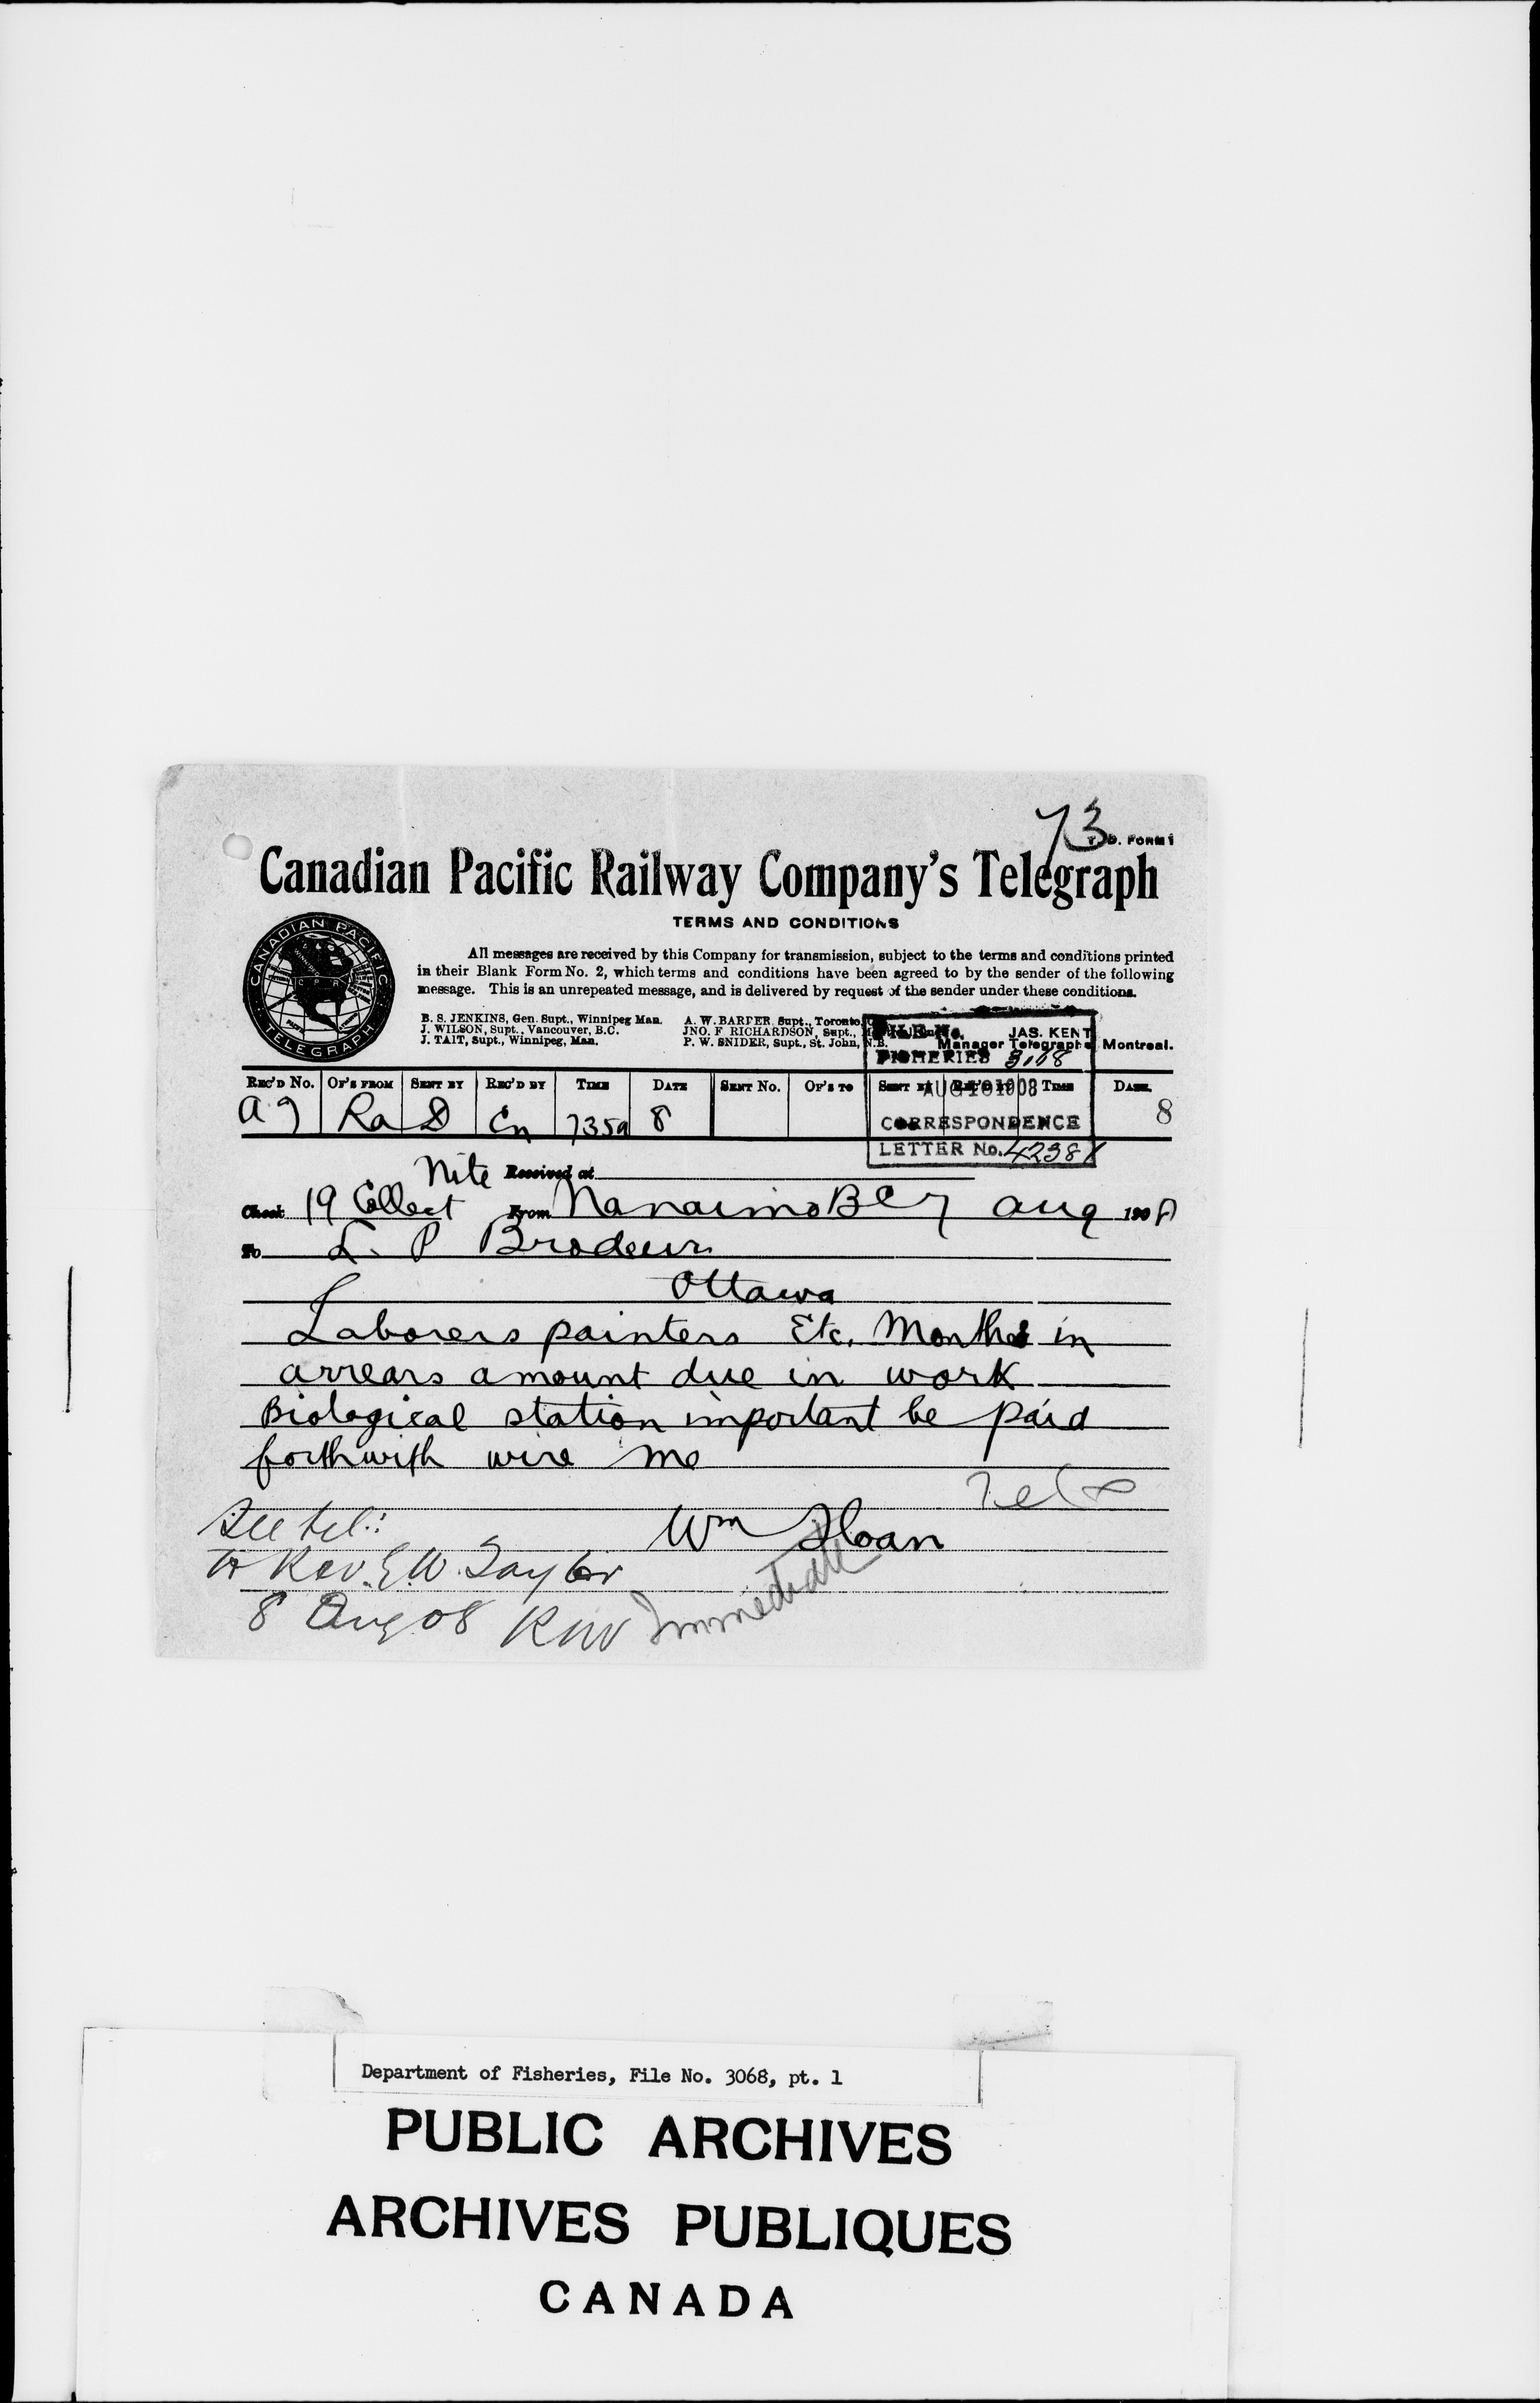 73
T. D. FORM 1
Canadian Pacific Railway Company's Telegraph
TERMS AND CONDITIONS
CANADIAN PACIFIC TELEGRAPH
All messages are received by this Company for transmission, subject to the terms and conditions printed
in their Blank Form No. 2, which terms and conditions have been agreed to by the sender of the following
message. This is an unrepeated message, and is delivered by request of the sender under these conditions.
B. S. JENKINS, Gen. Supt., Winnipeg Man. A. W. BARBER, Supt., Toronto,
J. WILSON, Supt., Vancouver, B.C. JNO. F. RICHARDSON, Supt., JAS. KENT
J. TAIT, Supt., Winnipeg, Man. P. W. SNIDER, Supt., St. John, N.B. Manager Telegraphs Montreal.
FILE No.
FISHERIES
AUG 10 1908
CORRESPONDENCE
LETTER No.
REC'D No. OF'S FROM SENT BY REC'D BY TIME DATE SENT No. OF'S TO SENT BY REC'D BY TIME DATE
Ra D 735a 8 8
Nite Received at
Check 19 Collect From Nanaimo BC 7 Aug 190
To L. P Brodeur
Ottawa
Laborers painters Etc. Months in
arrears amount due in work
Biological station important be paid
forthwith wire me
Wm Sloan
See tel.:
to Rev. G. W. Taylor
8 Aug 08 Immediate
Department of Fisheries, File No. 3068, pt. 1
PUBLIC ARCHIVES
ARCHIVES PUBLIQUES
CANADA